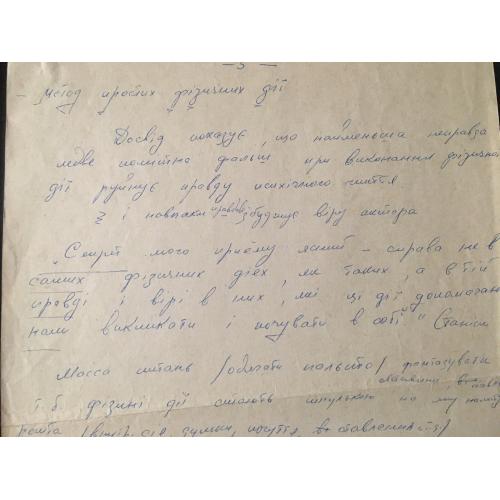 — 3 —
— метод простих фізичних дій
Досвід показує, що найменьша неправда
ледве помітна фальш при виконанні фізичної
дії руйнує правду психічного життя
і навпаки правдиві збуджує віру актора
„Секрет мого прийому ясний — справа не в
самих фізичних діях, як таких, а в тій
правді і вірі в них, які ці дії допомагають
нам викликати і почувати в собі" Станісл
Масса питань /одягати пальто/ фантазувати
т. б. фізичні дії стають
думки, почуття,